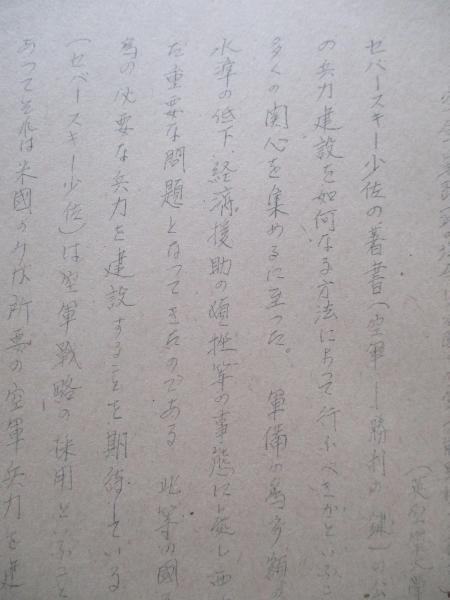 (英空軍大学
セバースキー少佐の著書(空軍―勝利の鍵)の公
の兵力建設を如何なる方法によって行ふべきかといふこ
多くの関心を集めるに至つた。 軍備の為多額
水準の低下、経済援助の頓挫等の事態に
だ重要な問題となつてきたのである 此等の国
為の必要な兵力を建設することを期待している
(セバースキー少佐)は空軍戦略の採用といふこと
あつてそれは米國のみな所要の空軍兵力を